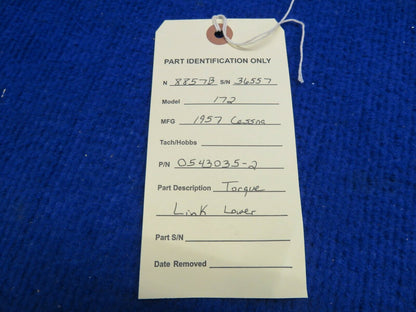 PART IDENTIFICATION ONLY
N 8857B S/N 36557
Model 172
MFG 1957 Cessna
Tach/Hobbs
P/N 0543035-2
Part Description Torque
Link Lower
Part S/N
Date Removed